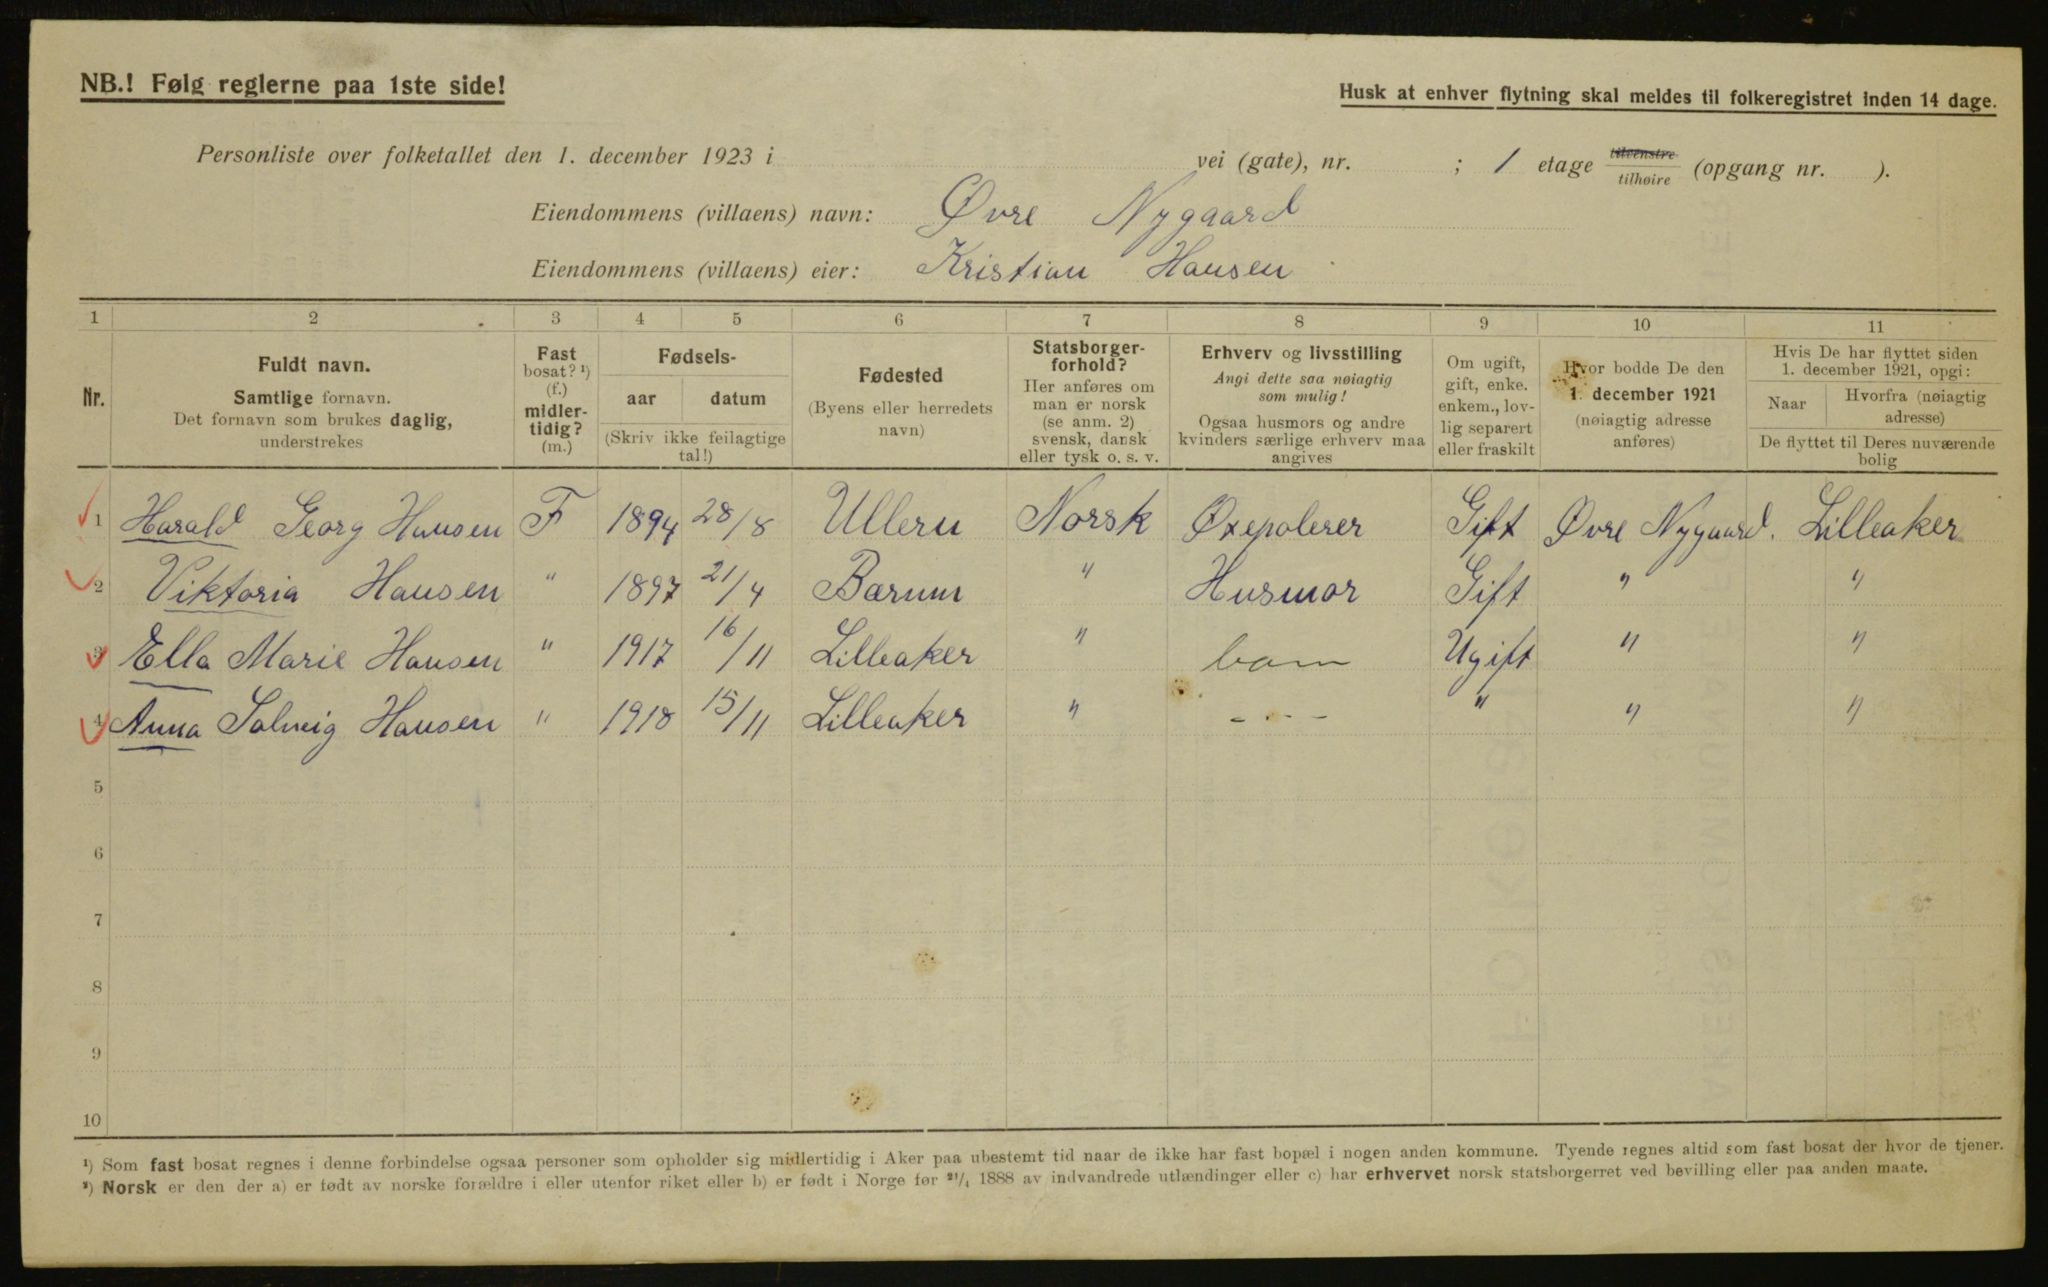 NB.! Følg reglerne paa 1ste side!
Husk at enhver flytning skal meldes til folkeregistret inden 14 dage.
Personliste over folketallet den 1. december 1923 i vei (gate), nr. ; 1 etage tilvenstre tilhøire (opgang nr. ).
Eiendommens (villaens) navn: Øvre Nygaard
Eiendommens (villaens) eier: Kristian Hansen
1 2 3 4 5 6 7 8 9 10 11
Nr.
Fuldt navn.
Samtlige fornavn.
Det fornavn som brukes daglig,
understrekes
Fast
bosat? ¹)
(f.)
midler-
tidig?
(m.)
Fødsels-
aar datum
(Skriv ikke feilagtige
tal!)
Fødested
(Byens eller herredets
navn)
Statsborger-
forhold?
Her anføres om
man er norsk
(se anm. 2)
svensk, dansk
eller tysk o. s. v.
Erhverv og livsstilling
Angi dette saa nøiagtig
som mulig!
Ogsaa husmors og andre
kvinders særlige erhverv maa
angives
Om ugift,
gift, enke.
enkem., lov-
lig separert
eller fraskilt
Hvor bodde De den
1. december 1921
(nøiagtig adresse
anføres)
Hvis De har flyttet siden
1. december 1921, opgi:
Naar
Hvorfra (nøiagtig
adresse)
De flyttet til Deres nuværende
bolig
1 Harald Georg Hansen F 1894 28/8 Ullern Norsk Øxepolerer Gift Øvre Nygaard. Lilleaker
2 Viktoria Hansen " 1897 21/4 Bærum " Husmor Gift " "
3 Ella Marie Hansen " 1917 16/11 Lilleaker " barn Ugift " "
4 Anna Solveig Hansen " 1918 15/11 Lilleaker " - - - " " "
5
6
7
8
9
10
¹) Som fast bosat regnes i denne forbindelse ogsaa personer som opholder sig midlertidig i Aker paa ubestemt tid naar de ikke har fast bopæl i nogen anden kommune. Tyende regnes altid som fast bosat der hvor de tjener.
²) Norsk er den der a) er født av norske forældre i eller utenfor riket eller b) er født i Norge før ²¹/₄ 1888 av indvandrede utlændinger eller c) har erhvervet norsk statsborgerret ved bevilling eller paa anden maate.